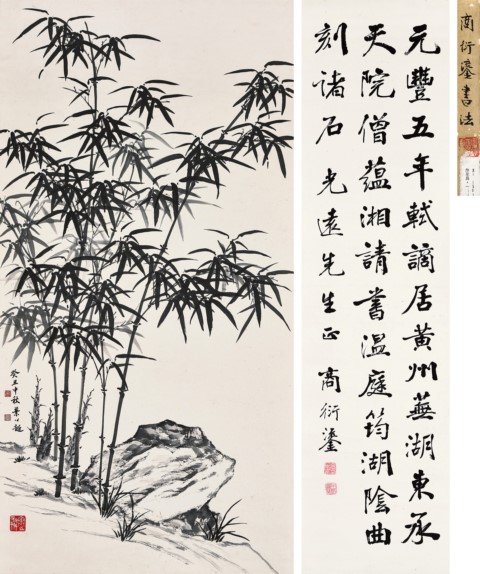 商衍鎏書法
元豐五年軾謫居黃州蕪湖東承
天院僧蘊湘請書溫庭筠湖陰曲
刻諸石 光遠先生正 商衍鎏
癸丑中秋 葉公超